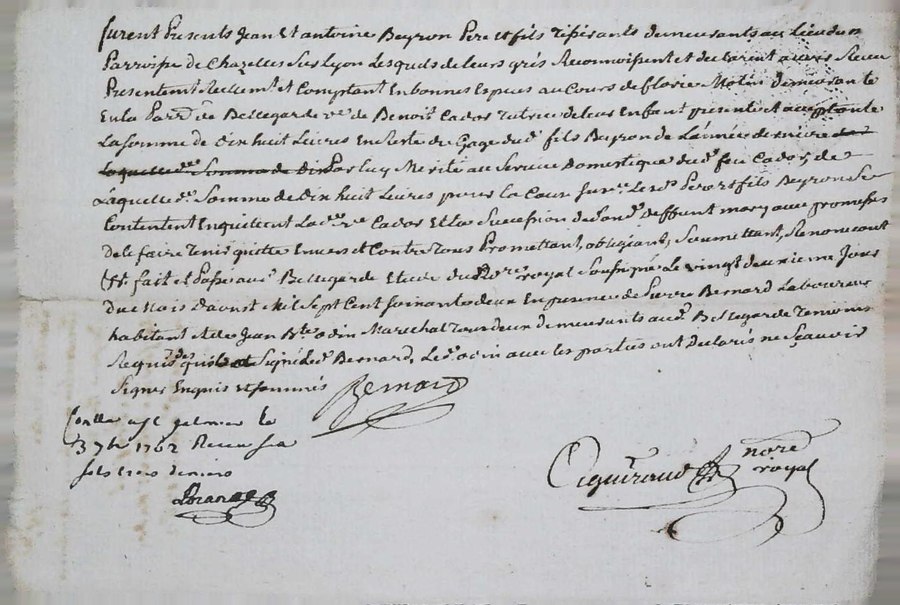 furent Presents Jean et antoine Beyron Pere et fils demeurants au Lieu de
Parroisse de Chazelles Sur Lyon Lesquels de leurs grés Reconnoissent et declarent avoir Receu
Presentemt Reellemt et Comptant en bonnes Especes au Cours de florie demeurante
En la Parr.e de Bellegarde ve de Benoit Cados tutrice de leurs Enfant présente et acceptante
La somme de dix huit Livres En Reste du Gage dud. fils Beyron de L'année derniere
Laquelle Somme de dix Par luy Mérité au Service Domestique dud. feu Cados, de
Laquelle de. Somme de dix huit Livres pour la Cause Les d. Pere et fils Beyron Se
Contentent En quittent La de. ve Cados Et la Succession de Son d. deffunt mary avec promesses
de le faire Tenir quitte Envers et Contre tous Promettant, obligeant, Soumettant, Renoncant
fait et Passé aud. Bellegarde Etude du nore royal Soussigné Le vingt deuxieme Jour
du Mois D'aoust Mil Sept Cent Soixante deux En presence de Pierre Bernard Laboureur
habitant et de Jean Bte odin Marechal demeurants aud. Bellegarde Temoins
Requis qui a Signé Led. Bernard, Led. odin avec les parties ont declaré ne Sçavoir
Signer Enquis et sommés
Bernard
Conllé a St galmier le
3 7bre 1762 Receu
sols trois deniers
nore
royal